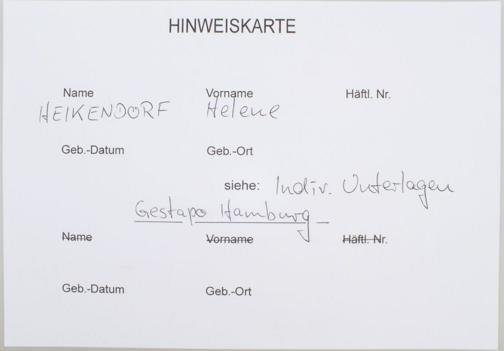 HINWEISKARTE
Name Vorname Häftl. Nr.
HEIKENDORF Helene
Geb.-Datum Geb.-Ort
siehe: Indiv. Unterlagen
Gestapo Hamburg
Name Vorname Häftl. Nr.
Geb.-Datum Geb.-Ort